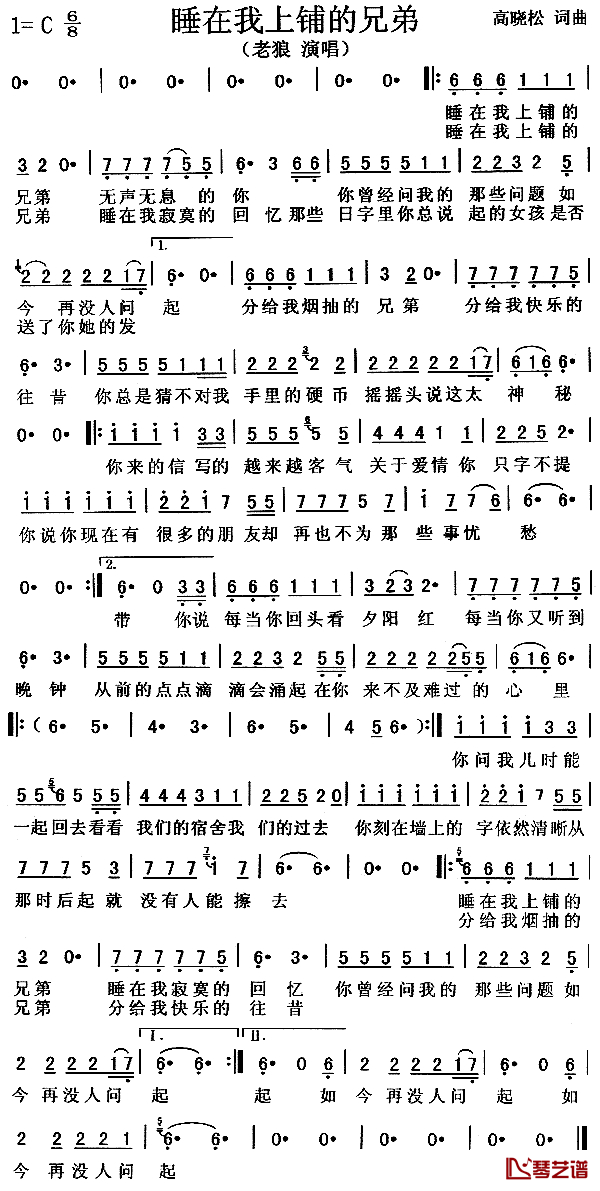 1=C 6/8 睡在我上铺的兄弟 高晓松 词曲
（老狼 演唱）
0· 0· | 0· 0· | 0· 0· | 0· 0· |: 6 6 6 1 1 1 |
睡在我上铺的
睡在我上铺的
3 2 0· | 7 7 7 7 5 5 | 6· 3 6 6 | 5 5 5 5 1 1 | 2 2 3 2 5 |
兄第 无声无息的你 你曾经问我的那些问题如
兄弟 睡在我寂寞的回忆那些日字里你总说起的女孩是否
1.
2 2 2 2 2 1 7 | 6· 0· | 6 6 6 1 1 1 | 3 2 0· | 7 7 7 7 7 5 |
今再没人问起 分给我烟抽的兄第 分给我快乐的
送了你她的发
6· 3· | 5 5 5 5 1 1 1 | 2 2 2 2 2 | 2 2 2 2 2 1 7 | 6 1 6 6· |
往昔 你总是猜不对我手里的硬币 摇摇头说这太神秘
0· 0· |: 1 1 1 1 3 3 | 5 5 5 5 5 | 4 4 4 1 1 | 2 2 5 2· |
你来的信写的越来越客气 关于爱情你只字不提
1 1 1 1 1 1 | 2 2 1 7 5 5 | 7 7 7 5 5 | 1 7 7 6 | 6· 6· |
你说你现在有很多的朋友却再也不为那些事忧愁
2.
0· 0· :| 6· 0 3 3 | 6 6 6 1 1 1 | 3 2 3 2· | 7 7 7 7 7 5 |
带 你说每当你回头看夕阳红 每当你又听到
6· 3· | 5 5 5 5 1 1 | 2 2 3 2 5 5 | 2 2 2 2 2 5 5 | 6 1 6 6· |
晚钟 从前的点点滴滴会涌起在你来不及难过的心里
|: ( 6· 5· | 4· 3· | 6· 5· | 4 5 6· ) :| 1 1 1 1 3 3 |
你问我几时能
5 5 6 5 5 5 | 4 4 4 3 1 1 | 2 2 5 2 0 | 1 1 1 1 1 1 | 2 2 1 7 5 5 |
一起回去看看我们的宿舍我们的过去 你刻在墙上的字依然清晰从
7 7 7 5 3 | 7 7 7 1 7 | 6· 6· | 0· 0· |: 6 6 6 1 1 1 |
那时后起就没有人能擦去 睡在我上铺的
分给我烟抽的
3 2 0· | 7 7 7 7 7 5 | 6· 3· | 5 5 5 5 1 1 | 2 2 3 2 5 |
兄第 睡在我寂寞的回忆 你曾经问我的那些问题如
兄第 分给我快乐的往昔
I. II.
2 2 2 2 1 7 | 6· 6· :| 6· 0 6 | 2 2 2 2 1 7 | 6· 0 6 |
今再没人问起 起如今再没人问起如
2 2 2 2 1 | 6· 6· | 0· 0· ‖
今再没人问起
琴艺谱